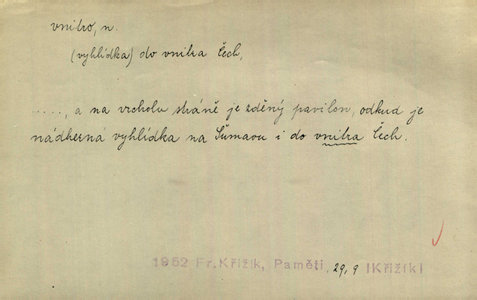 vnitro, n.
(vyhlídka) do vnitra Čech,
....., a na vrcholu stráně je zděný pavilon, odkud je
nádherná vyhlídka na Šumavu i do vnitra Čech.
1952 Fr. Křižík, Paměti, 29,9 |Křižík|